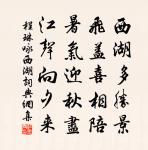 西湖多勝景
飛蓋喜相陪
暑氣迎秋盡
江聲向夕来
程琳咏西湖詞典網集